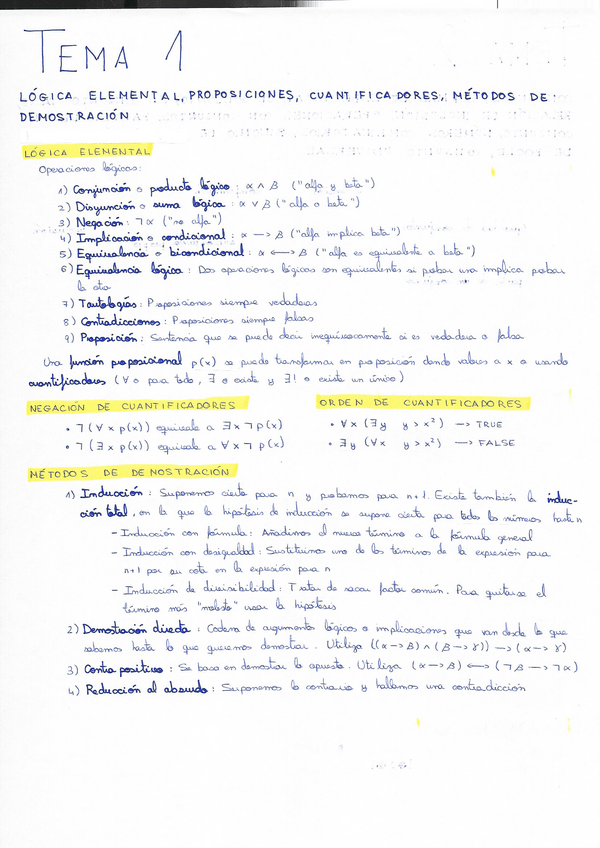 TEMA 1
LÓGICA ELEMENTAL, PROPOSICIONES, CUANTIFICADORES, MÉTODOS DE
DEMOSTRACIÓN
LÓGICA ELEMENTAL
Operaciones lógicas:
1) Conjunción o producto lógico: α ∧ β ("alfa y beta")
2) Disyunción o suma lógica: α ∨ β ("alfa o beta")
3) Negación: ¬α ("no alfa")
4) Implicación o condicional: α → β ("alfa implica beta")
5) Equivalencia o bicondicional: α ↔ β ("alfa es equivalente a beta")
6) Equivalencia lógica: Dos operaciones lógicas son equivalentes si probar una implica probar
la otra
7) Tautologías: Proposiciones siempre verdaderas
8) Contradicciones: Proposiciones siempre falsas
9) Proposición: Sentencia que se puede decir inequívocamente si es verdadera o falsa
Una función proposicional p(x) se puede transformar en proposición dando valores a x o usando
cuantificadores (∀ o para todo, ∃ o existe y ∃! o existe un único)
NEGACIÓN DE CUANTIFICADORES
• ¬(∀x p(x)) equivale a ∃x ¬p(x)
• ¬(∃x p(x)) equivale a ∀x ¬p(x)
ORDEN DE CUANTIFICADORES
• ∀x (∃y y > x²) → TRUE
• ∃y (∀x y > x²) → FALSE
MÉTODOS DE DEMOSTRACIÓN
1) Inducción: Suponemos cierta para n y probamos para n+1. Existe también la induc-
ción total, en la que la hipótesis de inducción se supone cierta para todos los números hasta n
– Inducción con fórmula: Añadimos el nuevo término a la fórmula general
– Inducción con desigualdad: Sustituimos uno de los términos de la expresión para
n+1 por su cota en la expresión para n
– Inducción de divisibilidad: Tratar de sacar factor común. Para quitarse el
término más "molesto" usar la hipótesis
2) Demostración directa: Cadena de argumentos lógicos o implicaciones que van desde lo que
sabemos hasta lo que queremos demostrar. Utiliza ((α → β) ∧ (β → γ)) → (α → γ)
3) Contra positivo: Se basa en demostrar lo opuesto. Utiliza (α → β) ↔ (¬β → ¬α)
4) Reducción al absurdo: Suponemos lo contrario y hallamos una contradicción